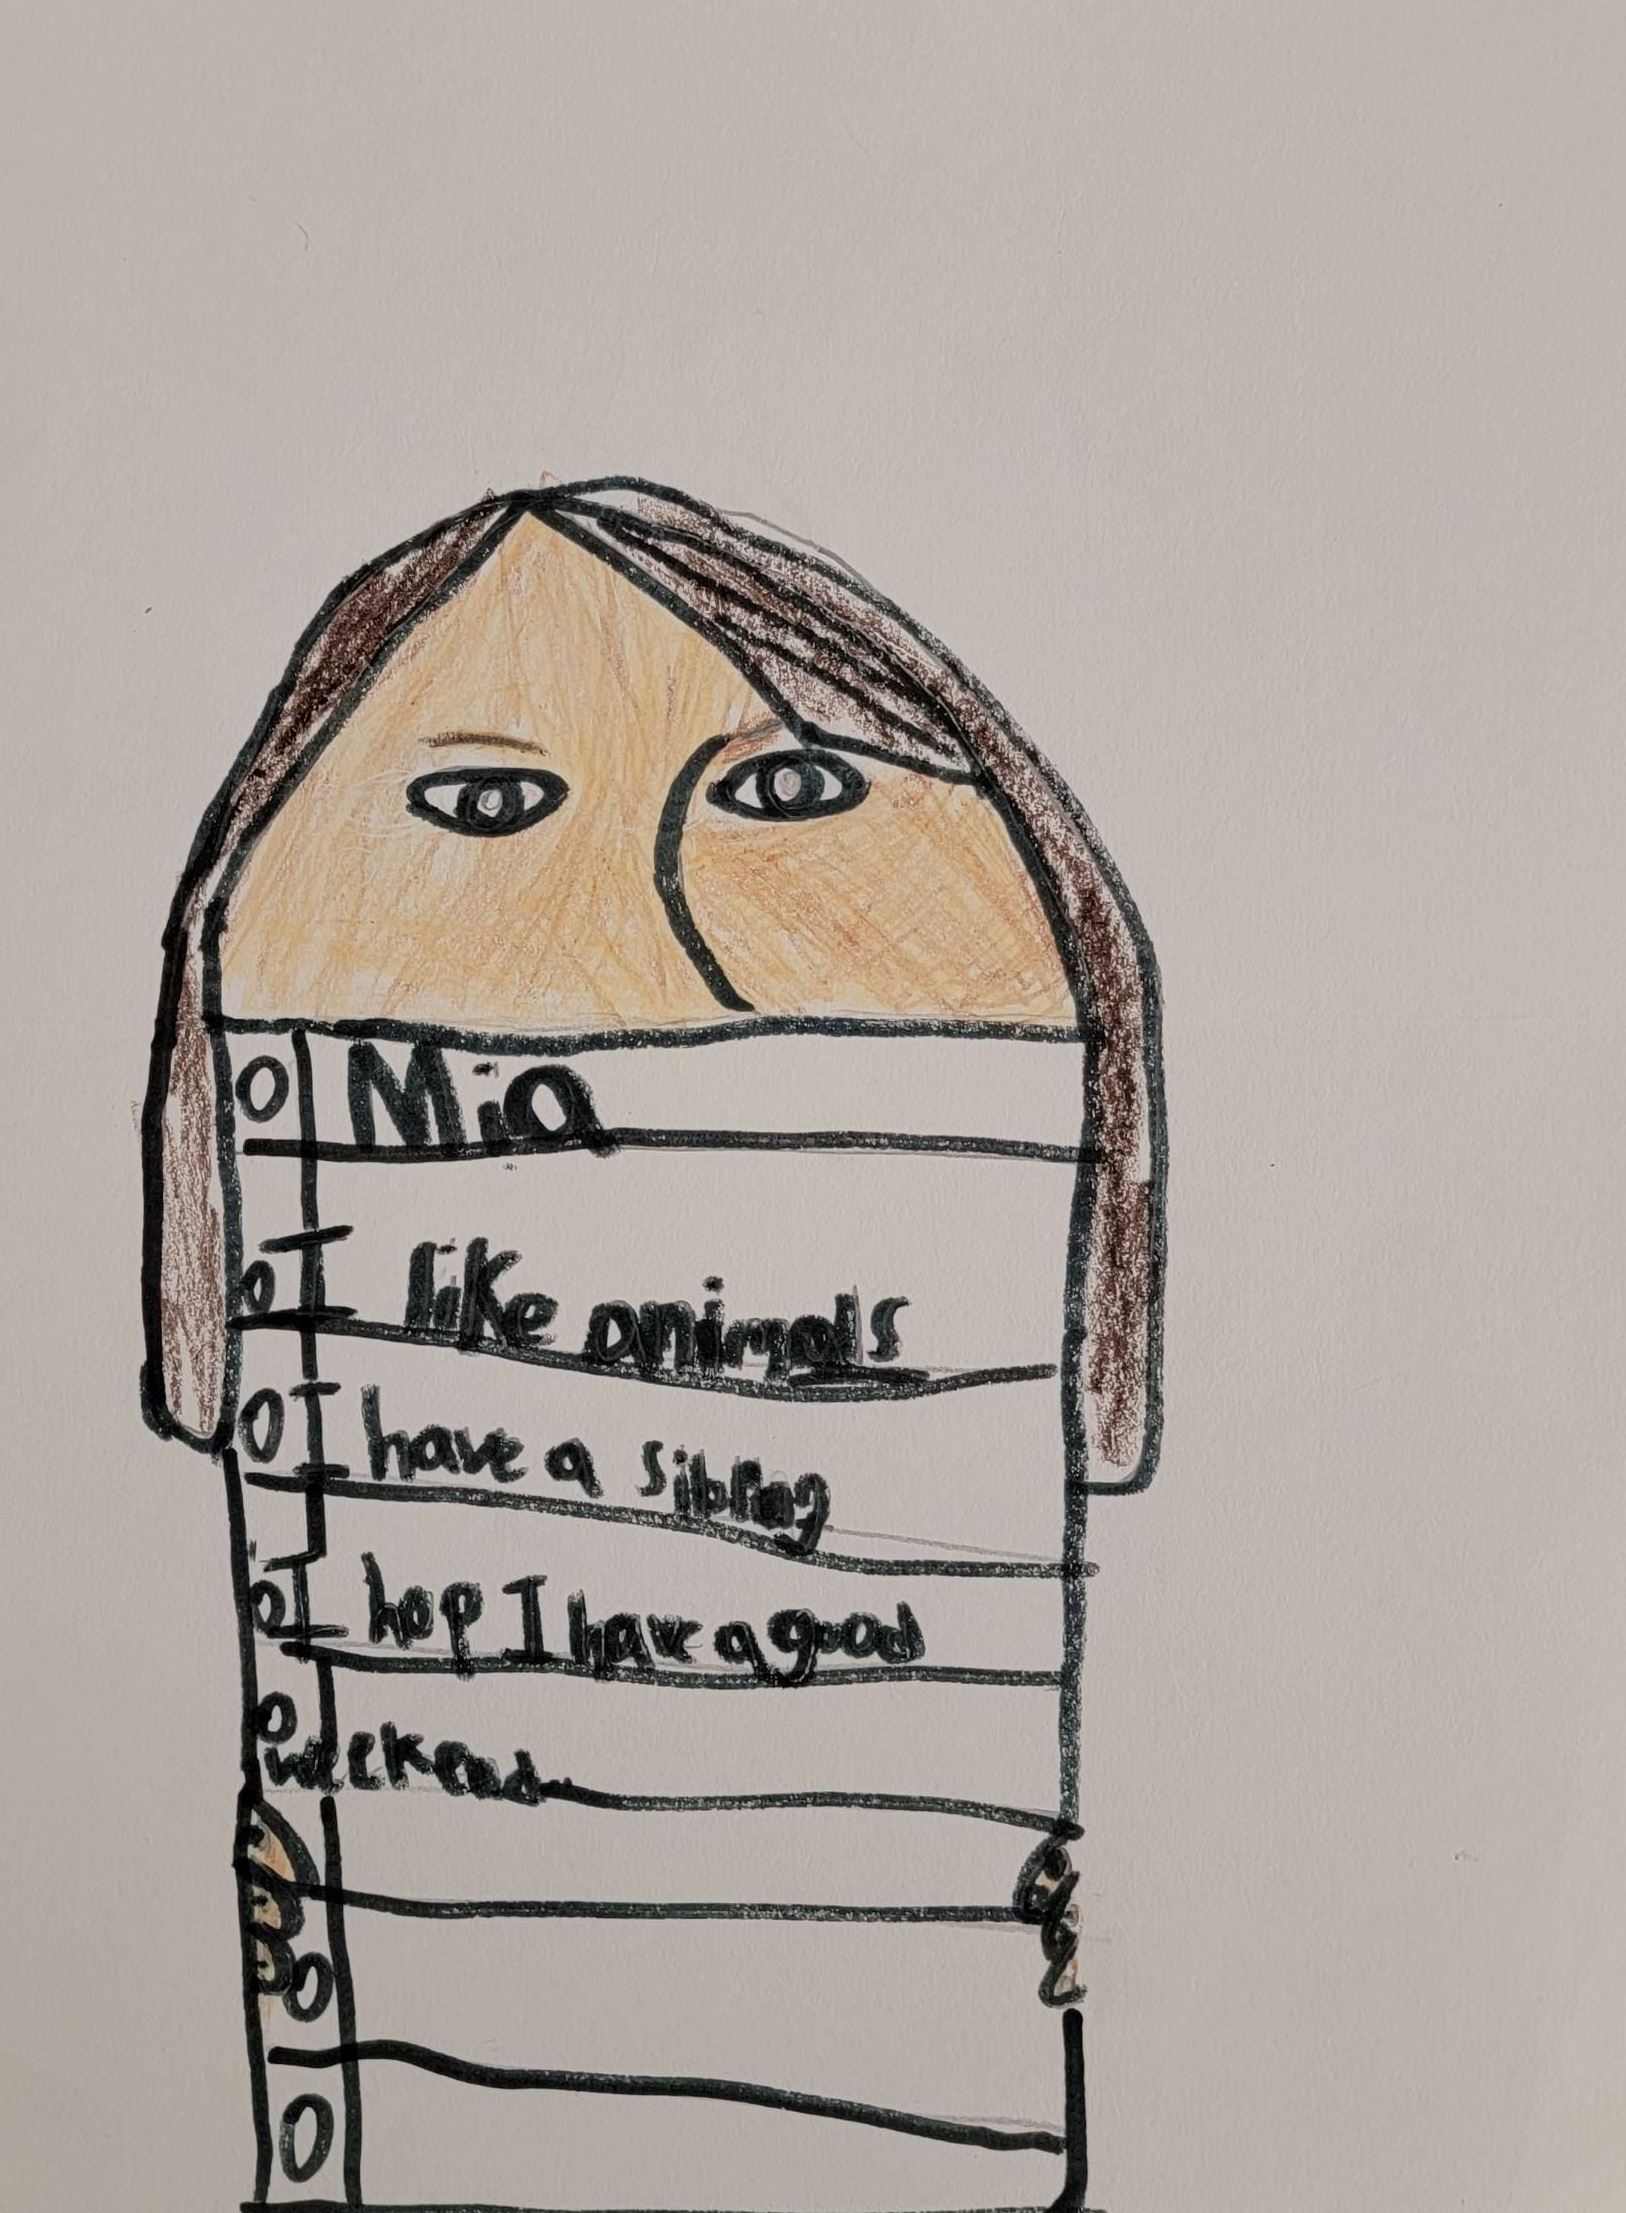 Mia
I like animals
I have a sibling
I hop I have a good
weekend